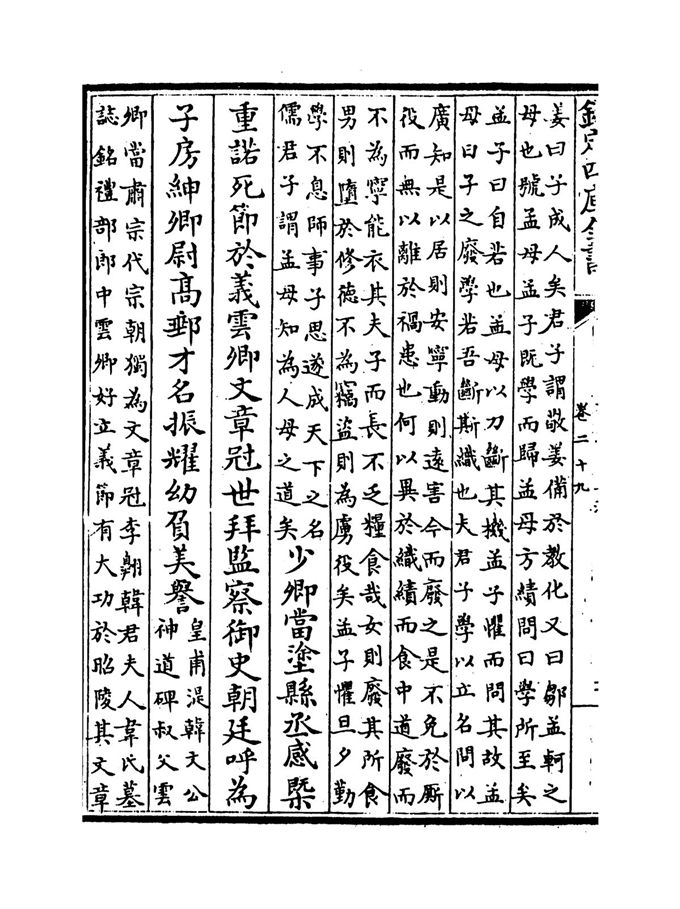 欽定四庫全書
卷二十九
姜曰子成人矣君子謂敬姜備於教化又曰鄒孟軻之
母也號孟母孟子既學而歸孟母方績問曰學所至矣
孟子曰自若也孟母以刀斷其機孟子懼而問其故孟
母曰子之廢學若吾斷斯織也夫君子學以立名問以
廣知是以居則安寧動則遠害今而廢之是不免於厮
役而無以離於禍患也何以異於織績而食中道廢而
不為寧能衣其夫子而長不乏糧食哉女則廢其所食
男則墮於修德不為竊盜則為虜役矣孟子懼旦夕勤
學不息師事子思遂成天下之名
儒君子謂孟母知為人母之道矣
少卿當塗縣丞感槩
重諾死節於義雲卿文章冠世拜監察御史朝廷呼為
子房紳卿尉高郵才名振耀幼負美譽
皇甫湜韓文公
神道碑叔父雲
卿當肅宗代宗朝獨為文章冠李翺韓君夫人韋氏墓
誌銘禮部郎中雲卿好立義節有大功於昭陵其文章